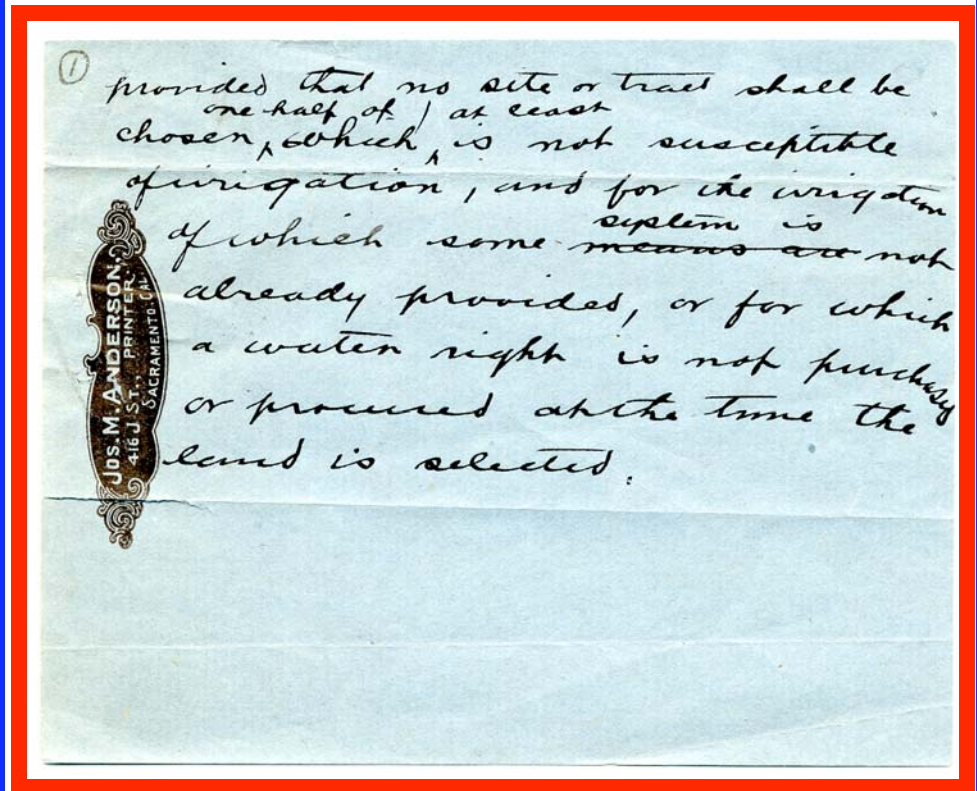 1
provided that no site or tract shall be
one half of / at least
chosen, ^ which ^ is not susceptible
of irrigation, and for the irrigation
system is
of which some means are not
already provided, or for which
a water right is not purchased
or procured at the time the
land is selected.
JOS. M. ANDERSON,
416 J ST., PRINTER,
SACRAMENTO. CAL